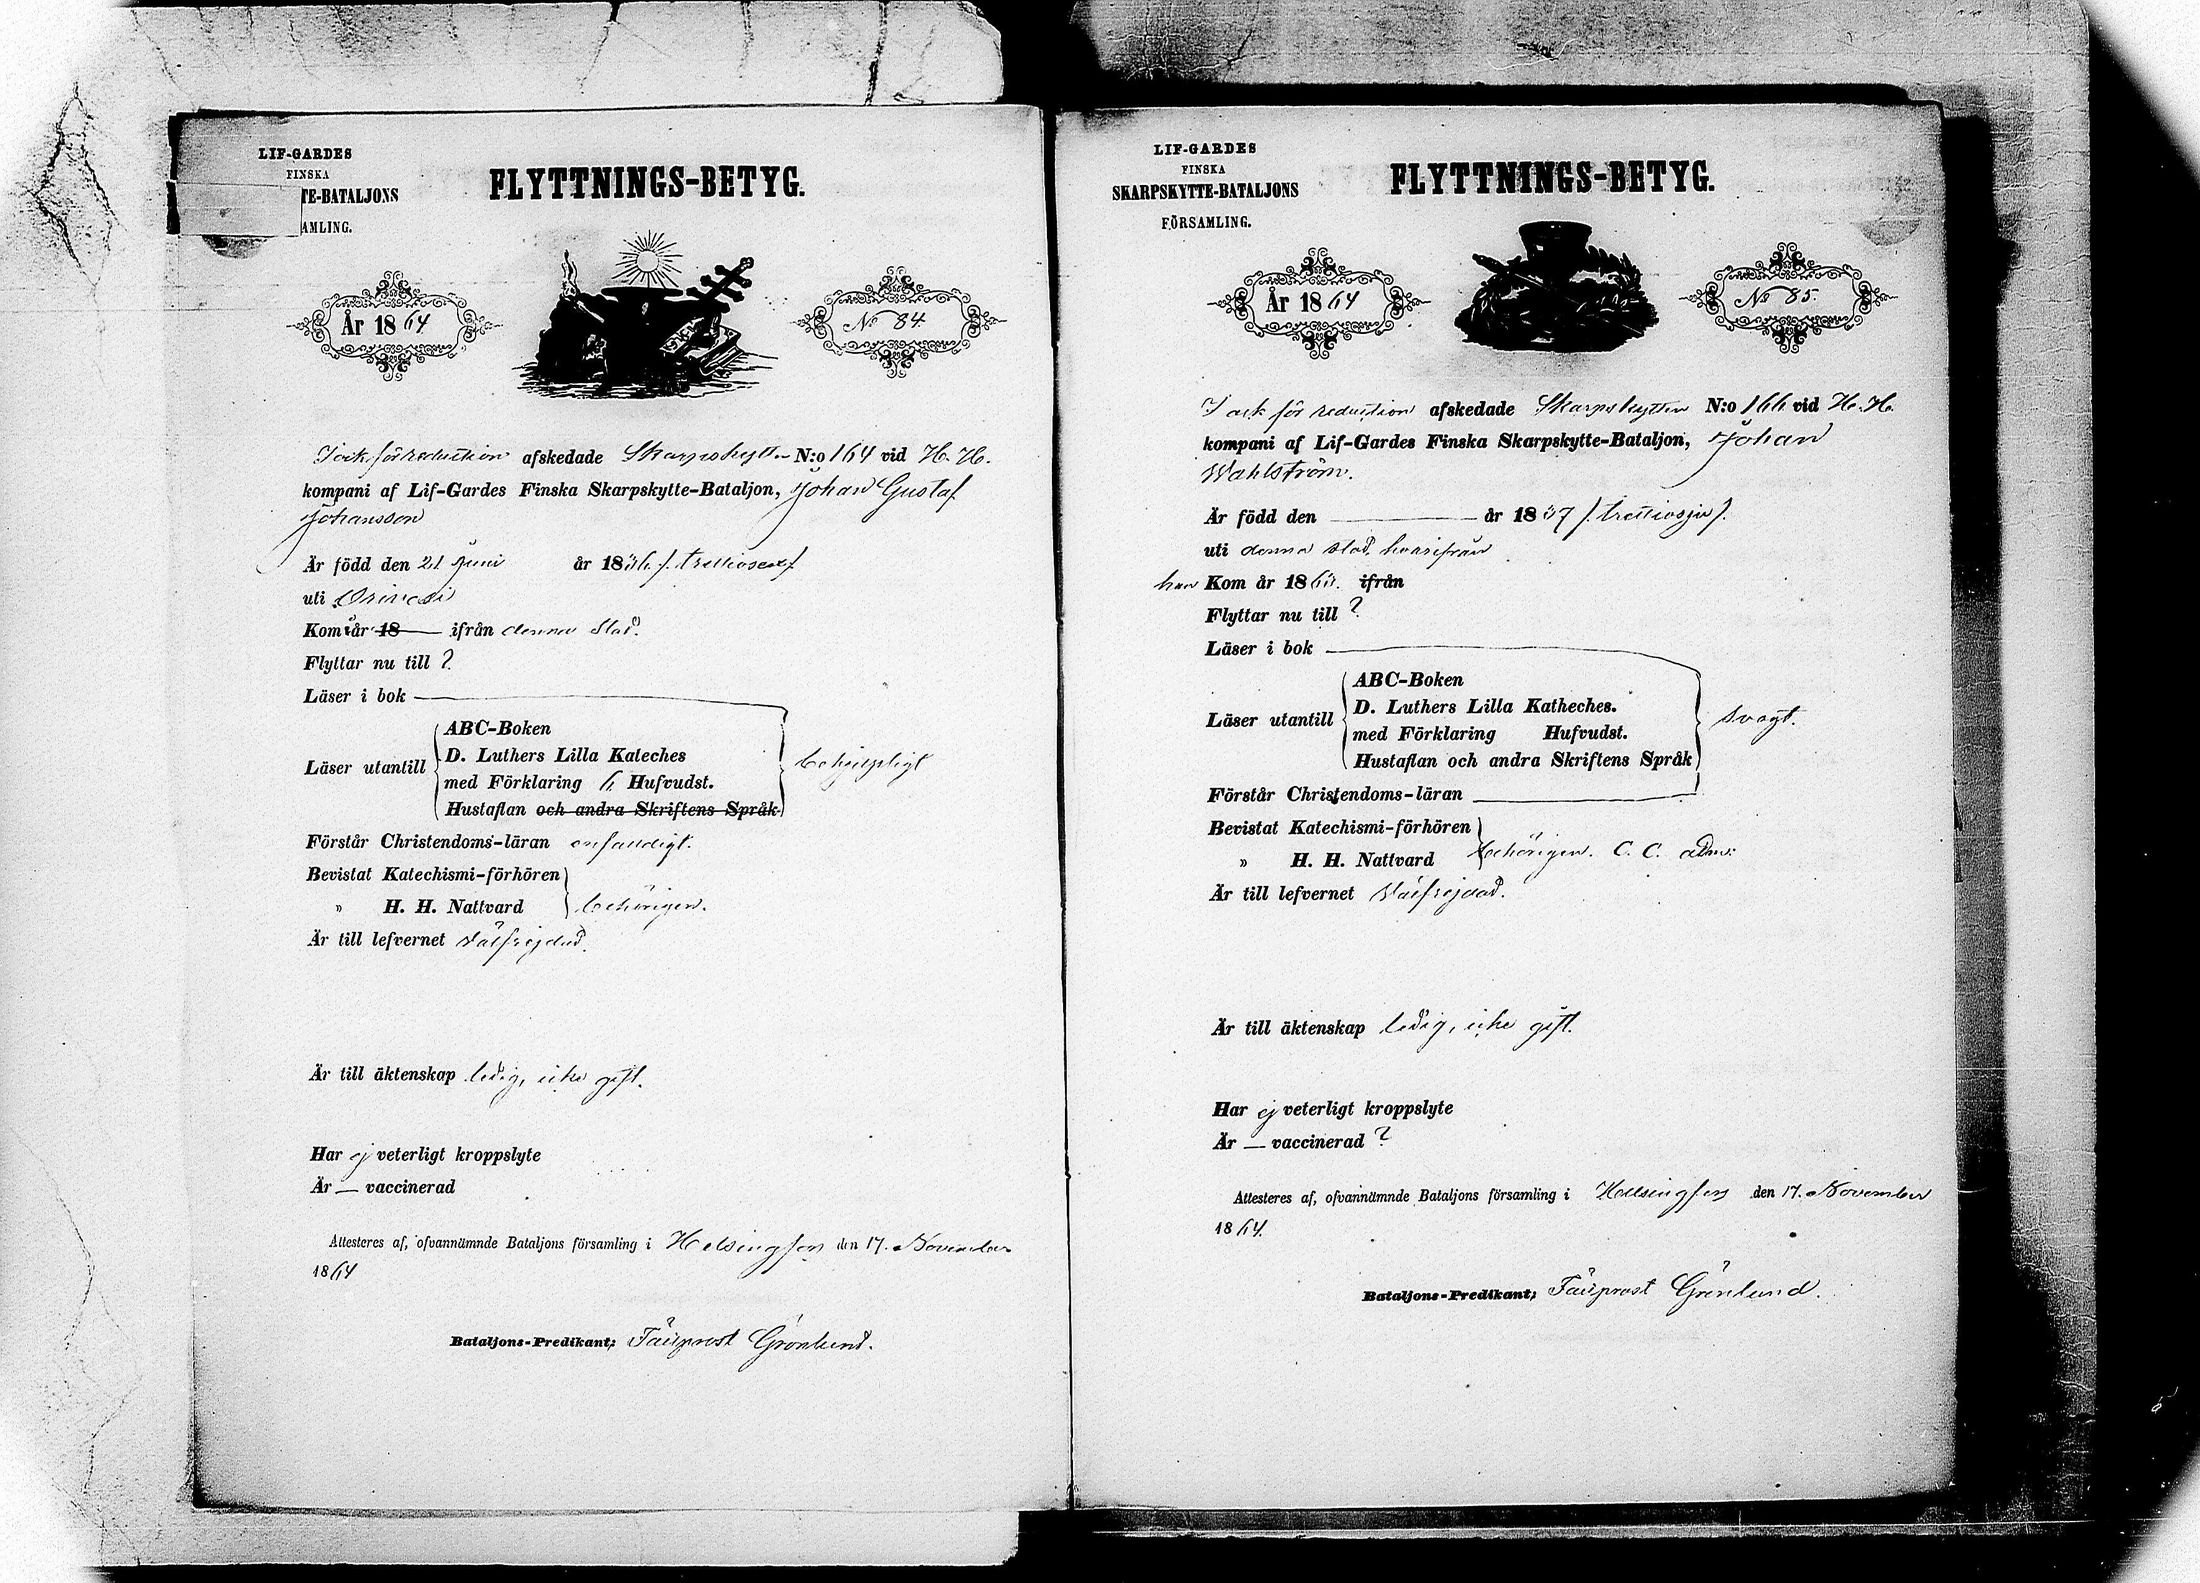 LIF-GARDES
FINSKA
TE-BATALJONS
AMLING.
FLYTTNINGS-BETYG.
År 1864
No 84.
I och för reduction afskedade Skarpskytten N:o 164 vid H. H.
kompani af Lif-Gardes Finska Skarpskytte-Bataljon, Johan Gustaf
Johansson
Är född den 21 Juni år 1836 /: trettiosex /.
uti Orivesi
Kom år 18 ifrån denna stad.
Flyttar nu till ?
Läser i bok
Läser utantill
ABC-Boken
D. Luthers Lilla Kateches
med Förklaring 6 Hufvudst.
Hustaflan och andra Skriftens Språk
behjelpligt
Förstår Christendoms-läran enfaldigt.
Bevistat Katechismi-förhören
" H. H. Nattvard behörigen.
Är till lefvernet välfrejdad.
Är till äktenskap ledig, icke gift.
Har ej veterligt kroppslyte
Är — vaccinerad
Attesteres af, ofvannämnde Bataljons församling i Helsingfors den 17. November
1864
Bataljons-Predikant; Fältprost Grönlund.
LIF-GARDES
FINSKA
SKARPSKYTTE-BATALJONS
FÖRSAMLING.
FLYTTNINGS-BETYG.
År 1864
No 85.
I och för reduction afskedade Skarpskytten N:o 166 vid H. H.
kompani af Lif-Gardes Finska Skarpskytte-Bataljon, Johan
Wahlström.
Är född den — år 1837 /. trettiosju /.
uti denna stad, hvarifrån
han Kom år 186 ifrån
Flyttar nu till ?
Läser i bok
Läser utantill
ABC-Boken
D. Luthers Lilla Katheches.
med Förklaring Hufvudst.
Hustaflan och andra Skriftens Språk
svagt.
Förstår Christendoms-läran
Bevistat Katechismi-förhören
" H. H. Nattvard behörigen. C. C. adm:
Är till lefvernet välfrejdad.
Är till äktenskap ledig, icke gift.
Har ej veterligt kroppslyte
Är — vaccinerad ?
Attesteres af, ofvannämnde Bataljons församling i Helsingfors den 17. November
1864.
Bataljons-Predikant; Fältprost Grönlund.